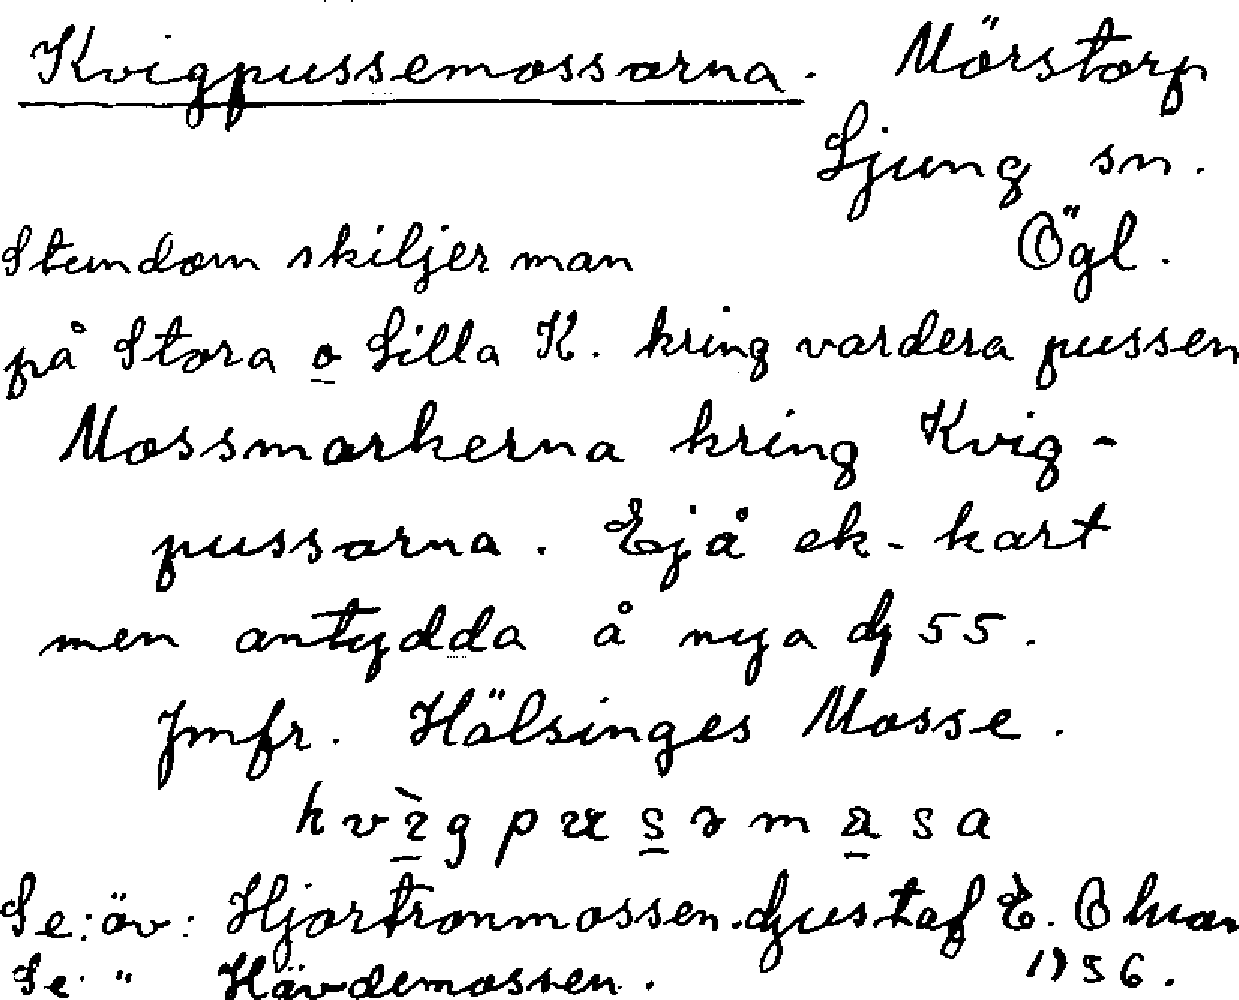 Kvigpussemossarna. Mörstorp
Ljung sn.
Stundom skiljer man Ögl.
på Stora o Lilla K. kring vardera pussen
Mossmarkerna kring Kvig-
pussarna. Ej å ek-kart
men antydda å nya dg 55.
Jmfr. Hälsinges Mosse.
Se: äv: Hjortronmossen. Gustaf E. Ohman
Se " Hävdemossen. 1956.